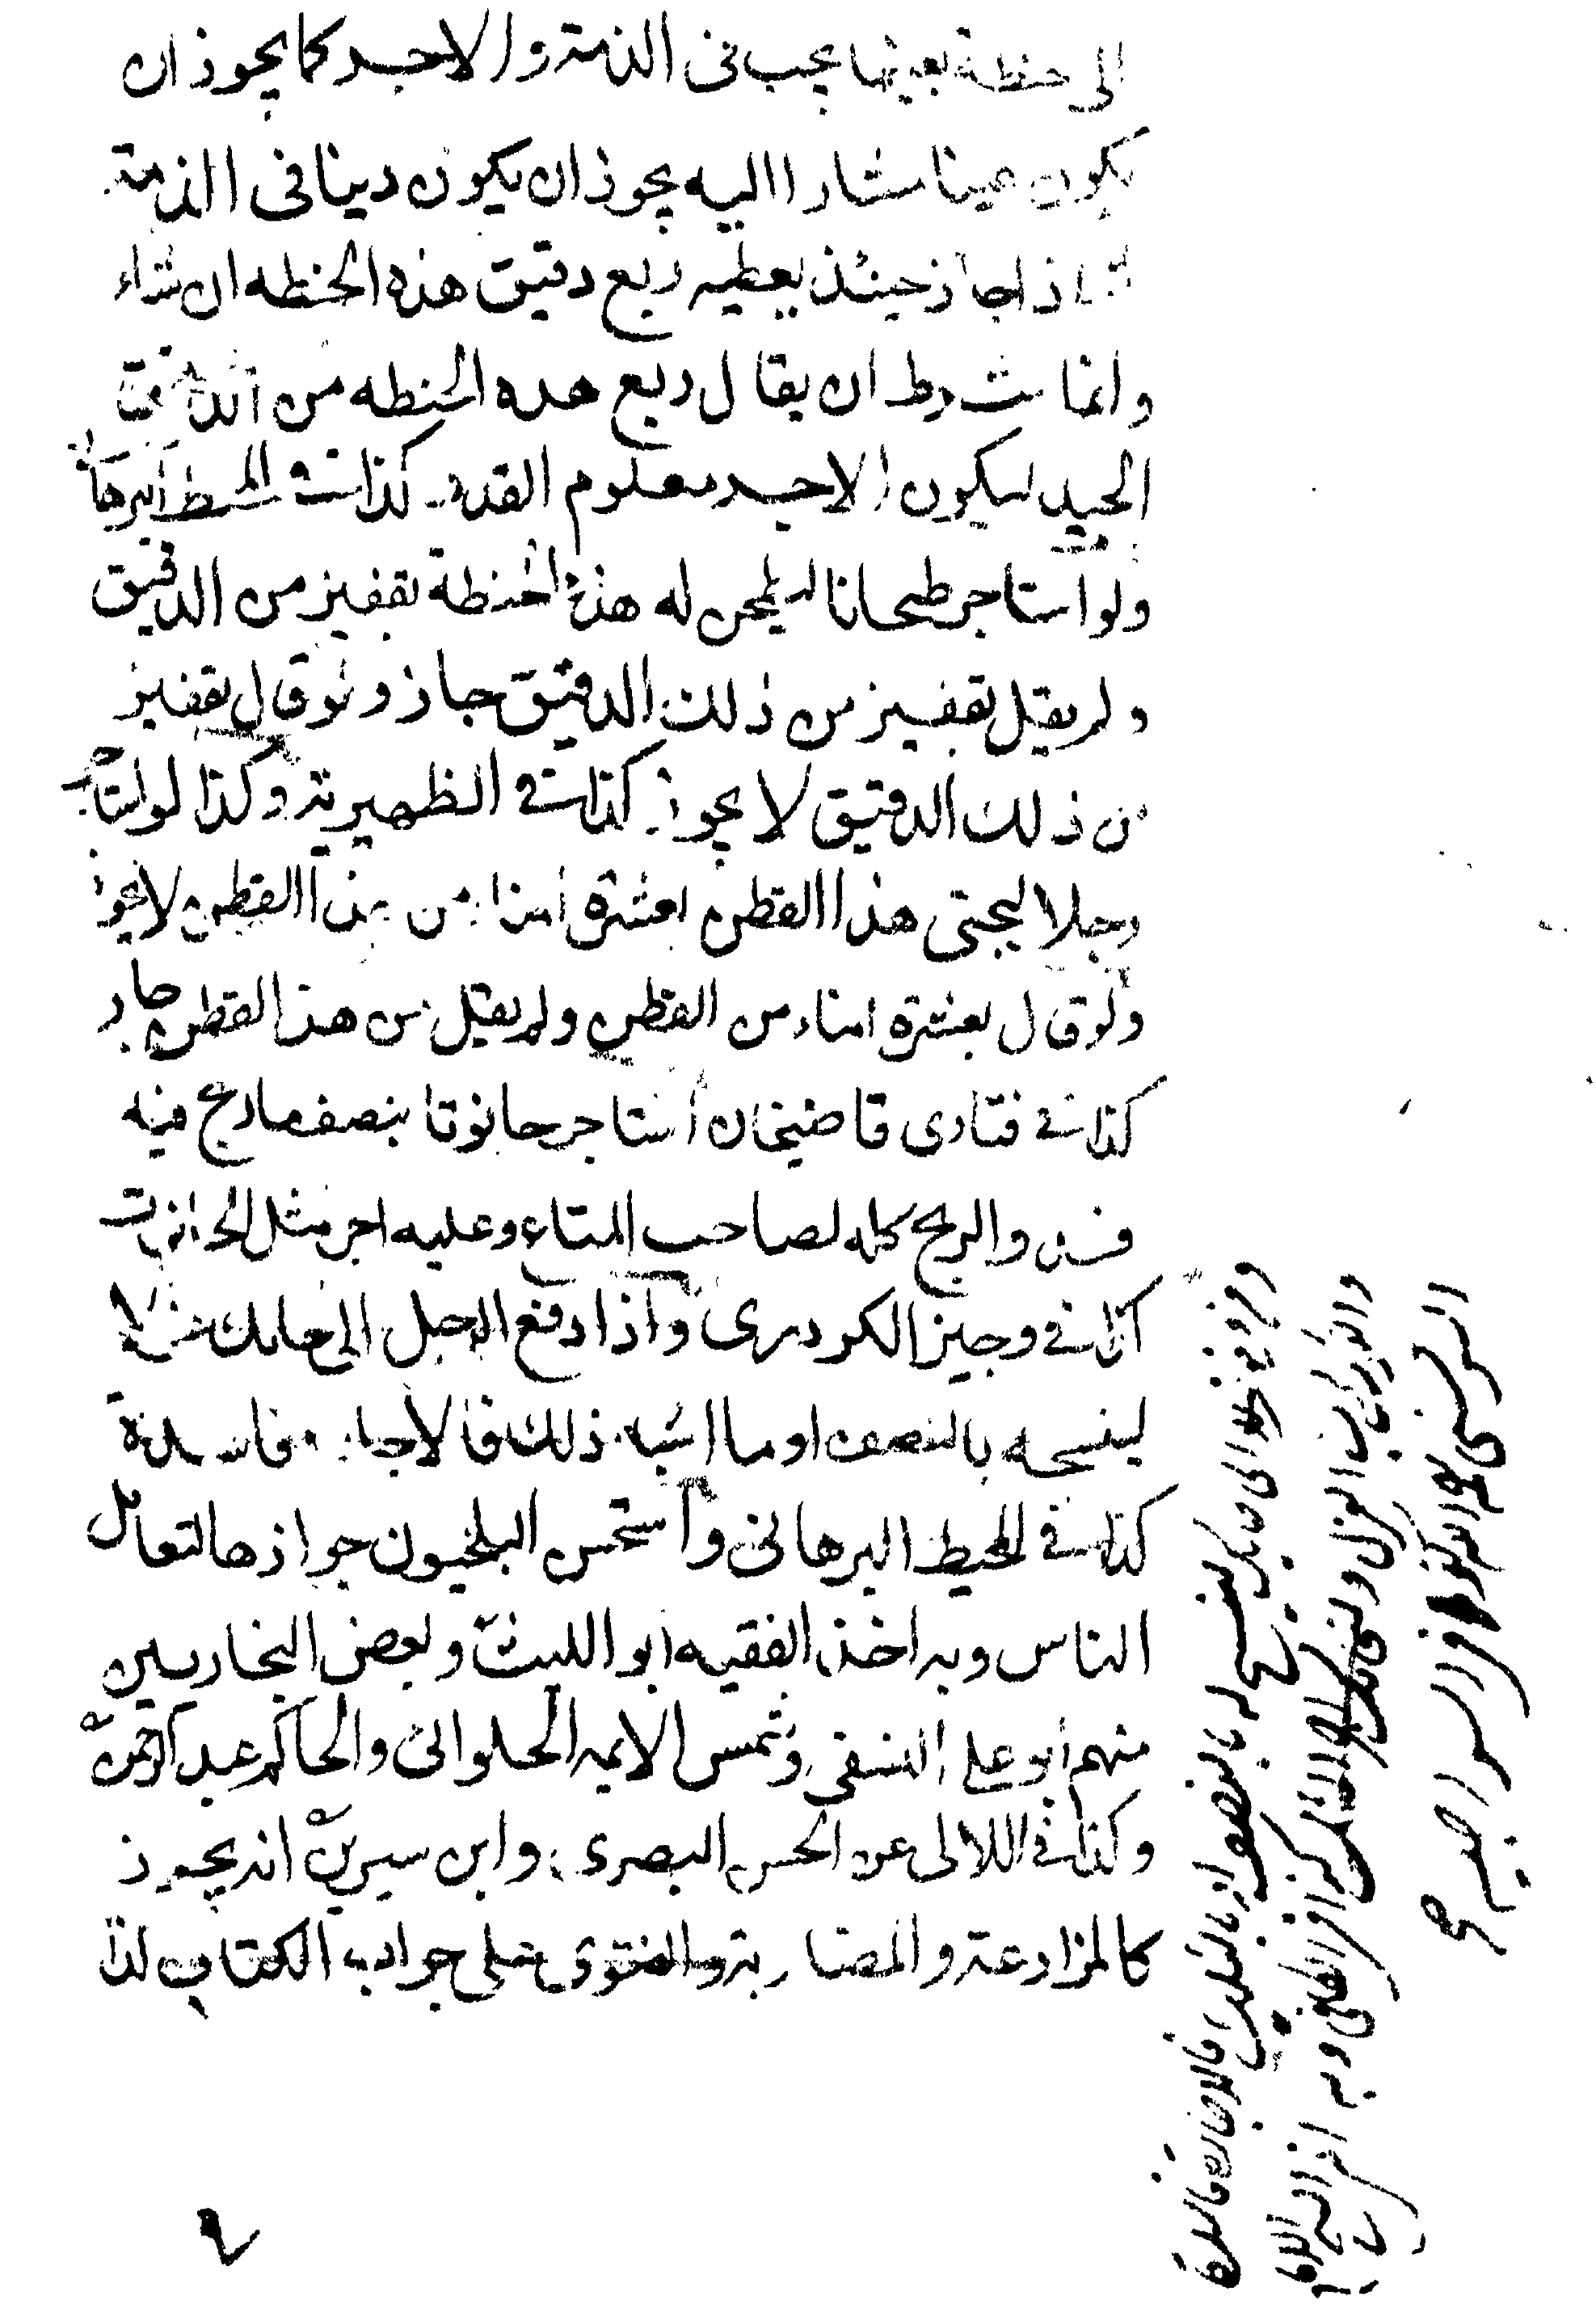 الى حنطة بعينها يجب فى الذمة والاجر كما يجوز ان
يكون عينا مشارا اليه يجوز ان يكون دينا فى الذمة
ثم اذا جاز حينئذ يعطيه ربع دقيق هذه الحنطه ان شاء
وانما شرط ان يقال ربع هذه الحنطه من الدقيق
الجيد ليكون الاجر معلوم القدر كذا فى المحيط
ولو استاجر طحانا ليطحن له هذه الحنطة بقفيز من الدقيق
ولم يقل بقفيز من ذلك الدقيق جاز ولو قال بقفيز
من ذلك الدقيق لا يجوز كذا فى الظهيرية وكذا لو استاجر
رجلا ليجنى هذا القطن بعشرة امناء من هذا القطن لا يجوز
ولو قال بعشرة امناء من القطن ولم يقل من هذا القطن جاز
كذا فى فتاوى قاضيخان استاجر حانوتا بنصف ما ربح فيه
فسد والربح كله لصاحب المتاع وعليه اجر مثل الحانوت
كذا فى وجيز الكردرى واذا دفع الرجل الى حائك غزلا
لينسجه بالنصف او ما اشبه ذلك فالاجارة فاسدة
كذا فى المحيط البرهانى واستحسن البلخيون جوازها لتعامل
الناس وبه اخذ الفقيه ابو الليث وبعض البخاريين
منهم ابو على النسفى وشمس الايمه الحلوانى والحاكم عبد الرحمن
وكذا فى اللالى عن الحسن البصرى وابن سيرين انه يجوز
كالمزارعة والمضاربة والفتوى على جواب الكتاب لذا
الى حايك لينسج له بالنصف او بالثلث فالاجارة فاسدة